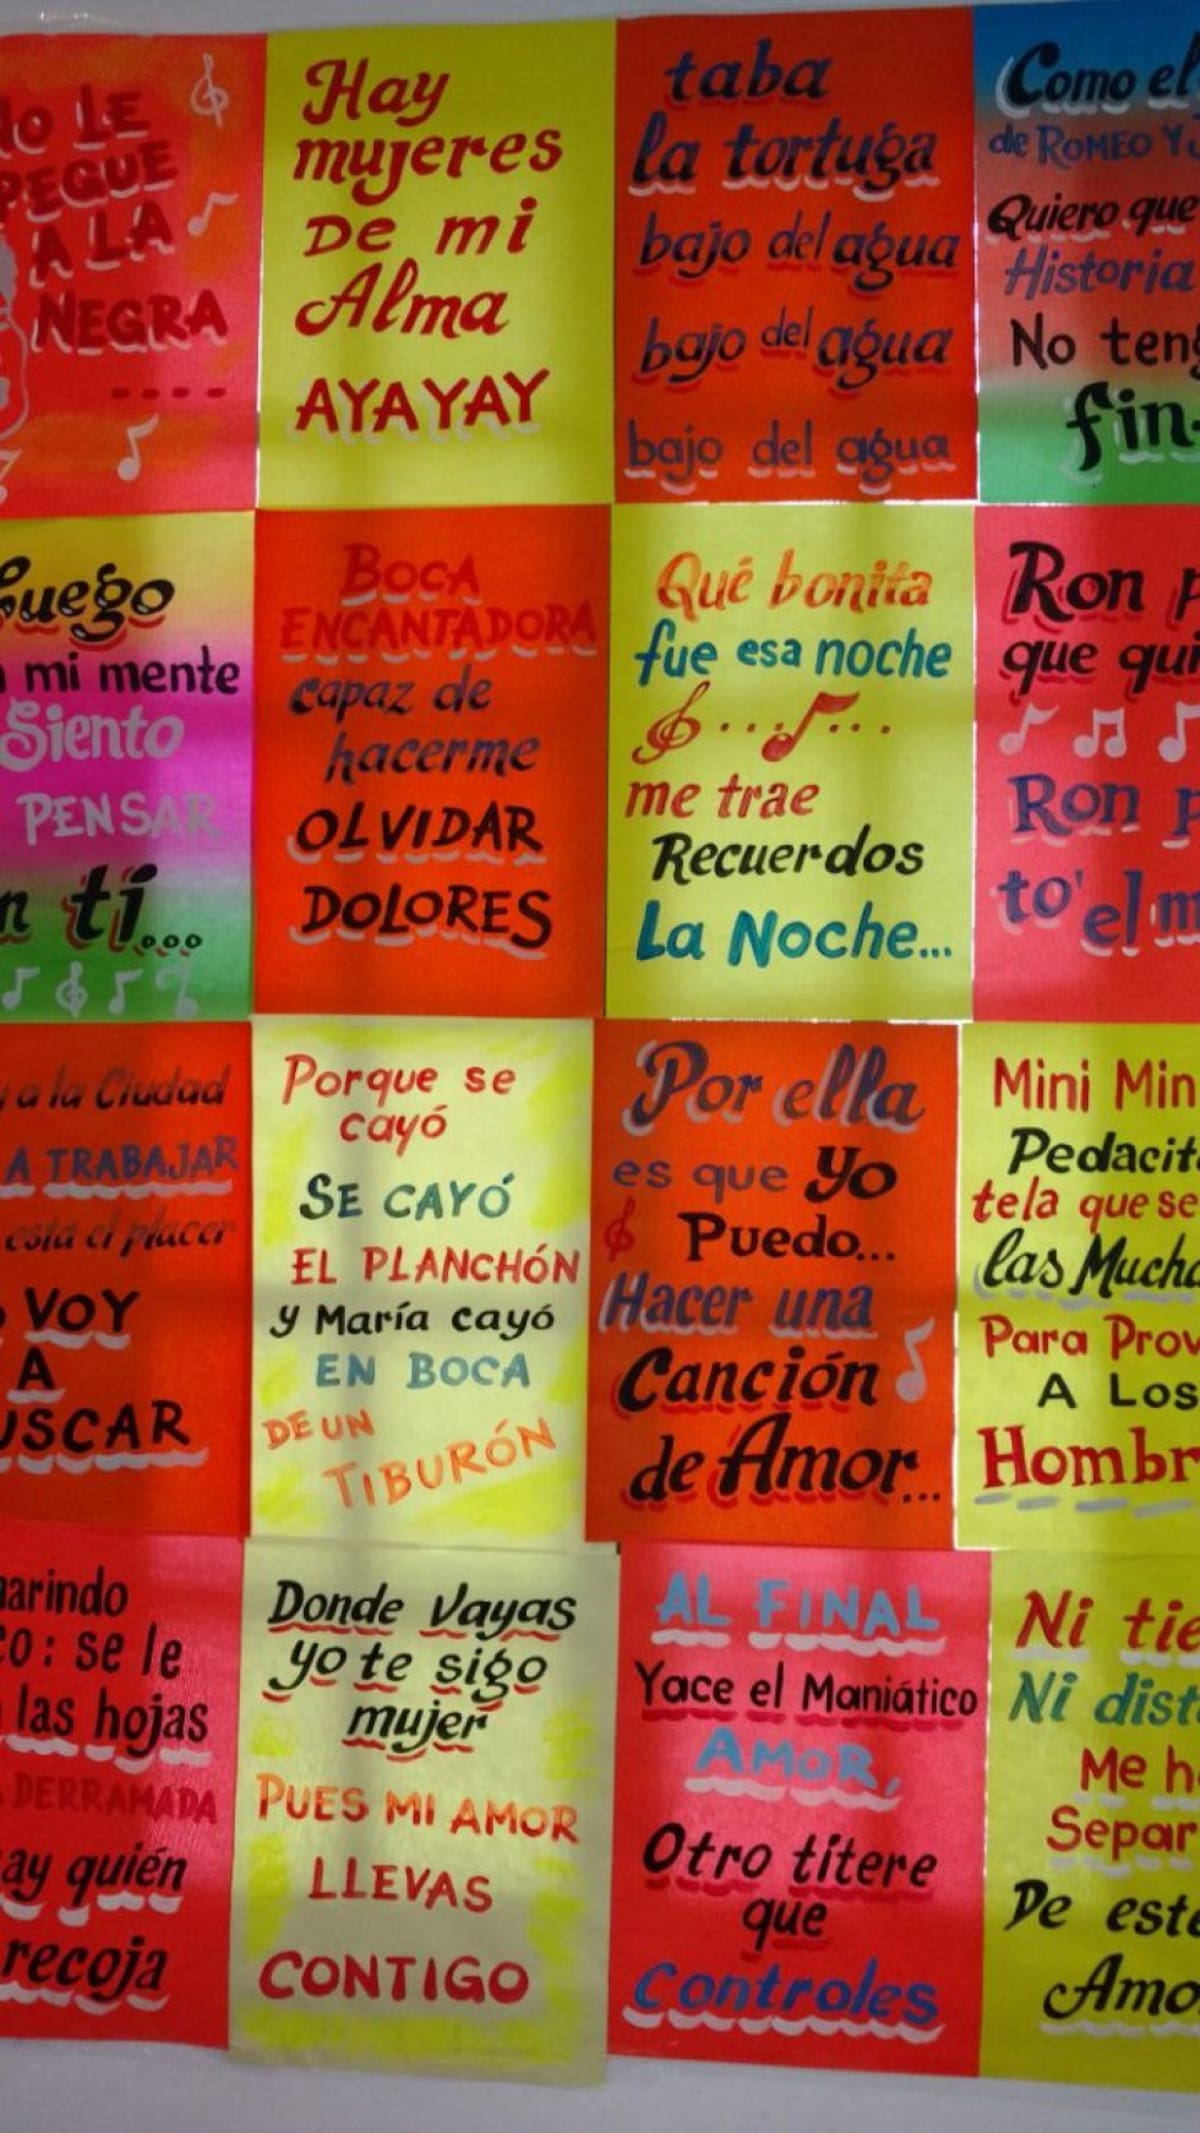 NO LE
PEGUE
A LA
NEGRA
....
Hay
mujeres
De mi
Alma
AYAYAY
taba
la tortuga
bajo del agua
bajo del agua
bajo del agua
Como el
de ROMEO Y
Quiero que
Historia
No teng
fin.
fuego
mi mente
Siento
PENSAR
n ti...
BOCA
ENCANTADORA
capaz de
hacerme
OLVIDAR
DOLORES
Qué bonita
fue esa noche
... ...
me trae
Recuerdos
La Noche...
Ron p
que qui
Ron p
to' el m
y a la Ciudad
A TRABAJAR
está el placer
VOY
A
USCAR
Porque se
cayó
SE CAYÓ
EL PLANCHÓN
y María cayó
EN BOCA
DE UN
TIBURÓN
Por ella
es que yo
Puedo...
Hacer una
Canción
de Amor...
Mini Min
Pedacit
tela que se
las Mucha
Para Prov
A Los
Hombr
arindo
co: se le
las hojas
DERRAMADA
ay quién
recoja
Donde Vayas
yo te sigo
mujer
PUES MI AMOR
LLEVAS
CONTIGO
AL FINAL
Yace el Maniático
AMOR,
Otro títere
que
Controles
Ni tie
Ni dist
Me h
Separ
De est
Amo